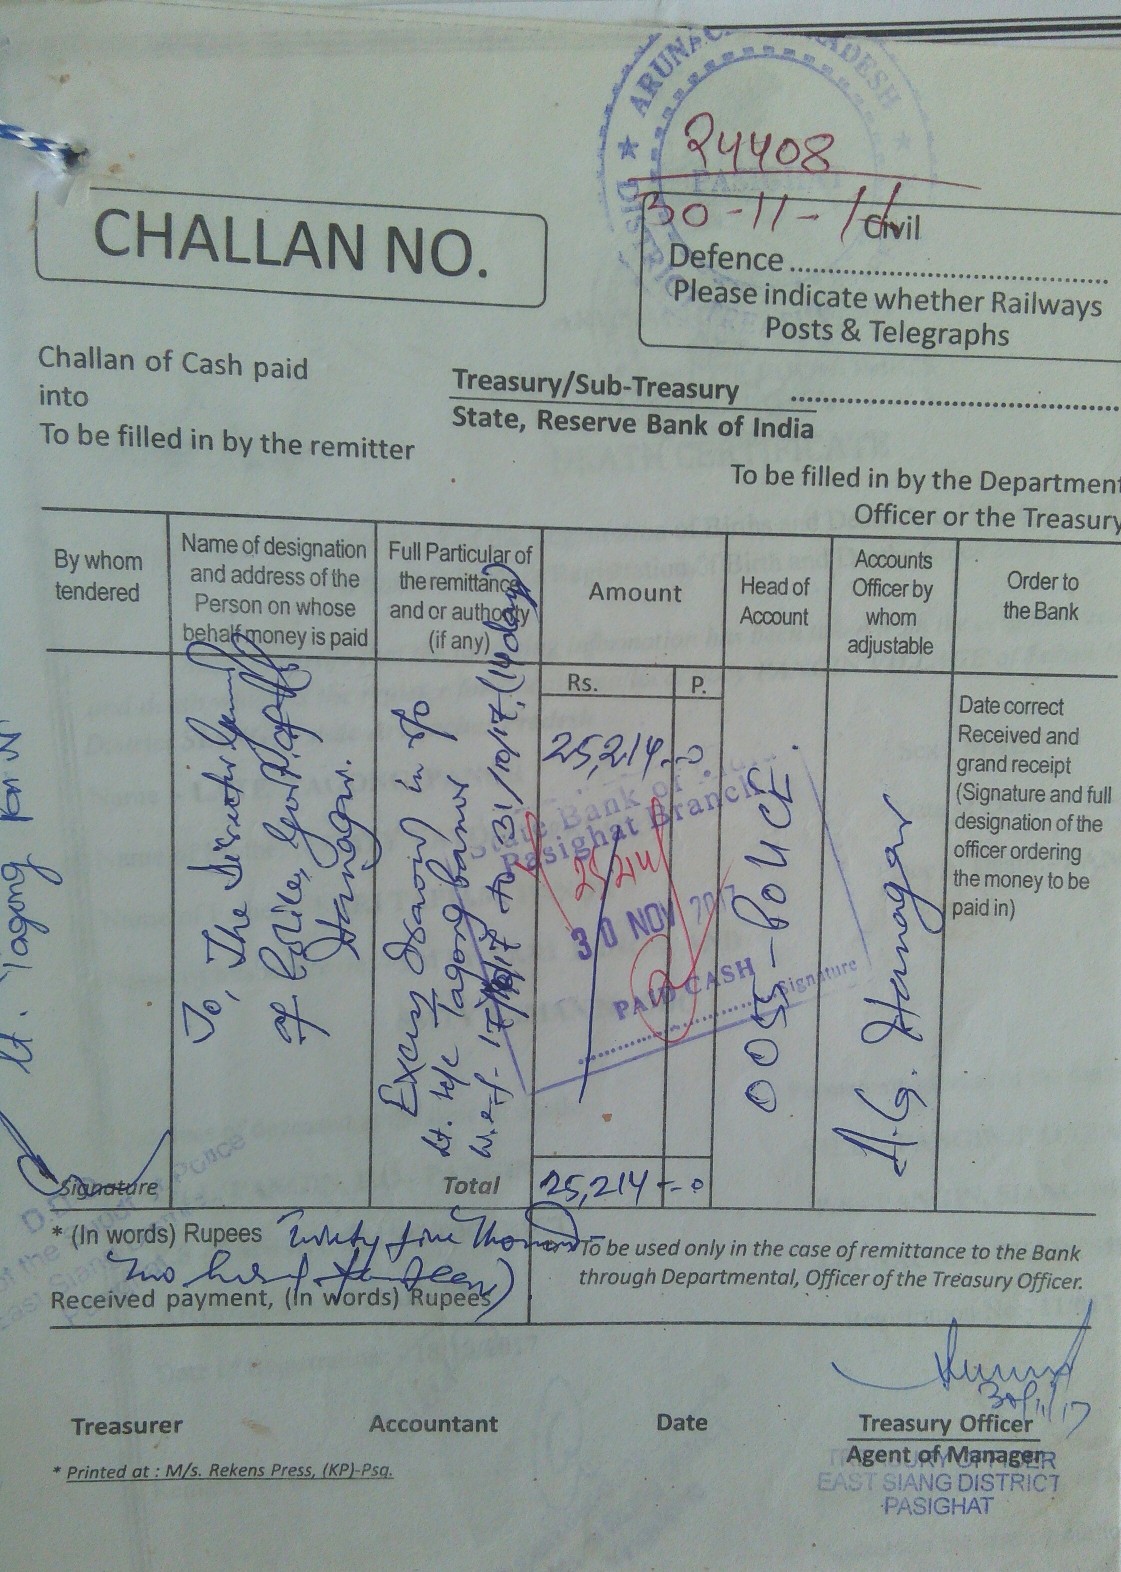 ARUNAC RADESH
DISTRICT
PASIGHAT
24408
30-11-
CHALLAN NO.
Civil
Defence
Please indicate whether Railways
Posts & Telegraphs
Challan of Cash paid
into
To be filled in by the remitter
Treasury/Sub-Treasury
State, Reserve Bank of India
To be filled in by the Department
Officer or the Treasury
By whom
tendered
Name of designation
and address of the
Person on whose
behalf money is paid
Full Particular of
the remittance
and or authority
(if any)
Amount
Head of
Account
Accounts
Officer by
whom
adjustable
Order to
the Bank
Rs.
P.
Lt. Tagong
To, The Director General
of Police, Govt. of
Itanagar.
Excess drawn in r/o
Lt. H/C Tagong
w.e.f- 17/10/17 to 31/10/17, (14 days)
25,214.-0
State Bank of
Pasighat Branch
25214
30 NOV 2017
PAID CASH
Signature
0055-POLICE.
A.G. Itanagar
Date correct
Received and
grand receipt
(Signature and full
designation of the
officer ordering
the money to be
paid in)
Signature
Total
25,214 --0
* (In words) Rupees Twenty five Thousand
Two hund fourteen)
Received payment, (In words) Rupees
To be used only in the case of remittance to the Bank
through Departmental, Officer of the Treasury Officer.
30/11/17
Treasurer
Accountant
Date
Treasury Officer
Agent of Manager
TREASURY OFFICER
EAST SIANG DISTRICT
PASIGHAT
* Printed at : M/s. Rekens Press, (KP)-Psq.